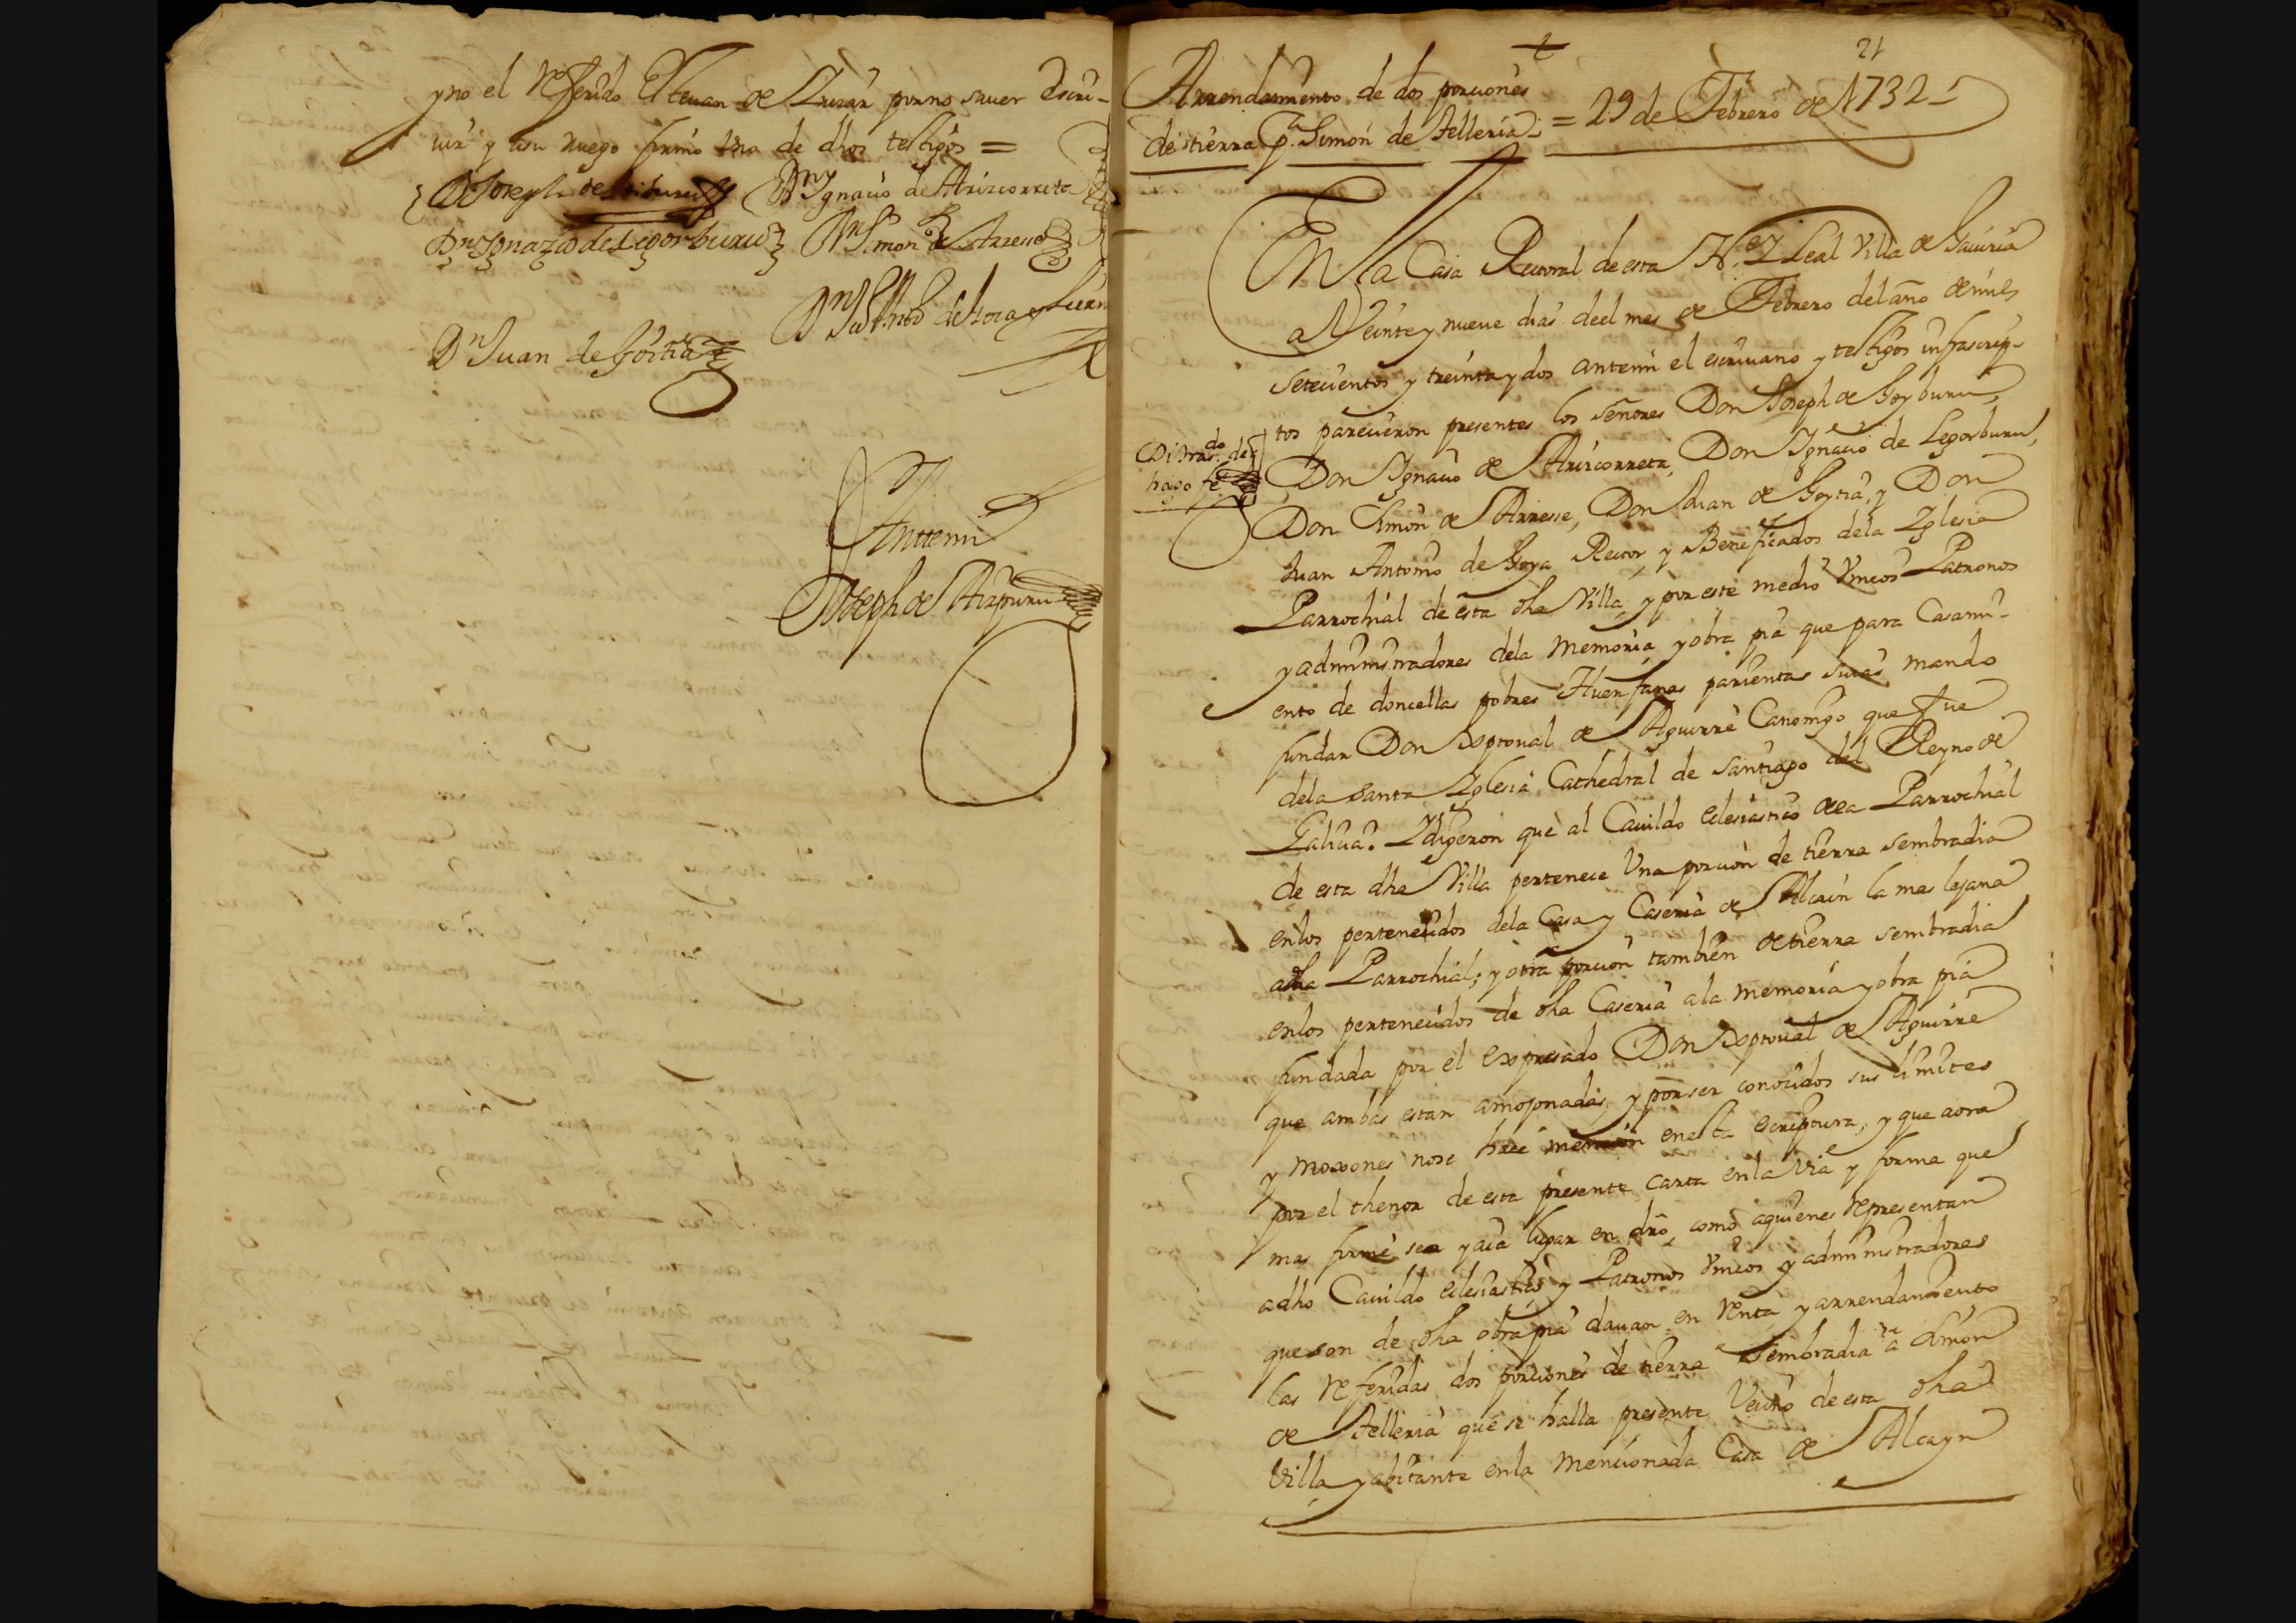 yno el referido Esteuan de Luzar por no sauer escri-
uir y a su ruego firmo vno de dhos testigos =
Dn Joseph de Dn Ygnacio de Arizcorreta
Dn Ignazio de Legorburu Dn Simon de Arresse
Dn Juan de Goitia
Antemi
Joseph de Aizpuru
21
Arrendamiento de dos porciones
de tierra pa Simon de Telleria = 29 de Febrero de 1732
En la Casa Rectoral de esta N. y Leal Villa de Gauiria
a Veinte y nueue dias deel mes de Febrero del año de mil
setecientos y treinta y dos antemi el escriuano y testigos infrascrip-
tos parecieron presentes los señores Don Joseph de Goyburu,
Di tras.do de
hago fe
Don Ygnacio de Arizcorreta, Don Ygnacio de Legorburu,
Don Simon de Arresse, Don Juan de Goytia, y Don
Juan Antonio de Goya Rector, y Beneficiados dela Yglesia
Parrochial de esta dha Villa, y por este medio Vnicos Patronos
y administradores dela memoria, y obra pia que para Casami-
ento de doncellas pobres Huerfanas parientas suias mando
fundar Don Xptoual de Aguirre Canonigo que fue
dela Santa Yglesia Cathedral de Santiago del Reyno de
Galicia: Y digeron que al Cauildo eclesiastico de la Parrochial
de esta dha Villa pertenece Vna porcion de tierra sembradia
en los pertenecidos dela Casa y Caseria de Alcain la mas lejana
a dha Parrochial; y otra porcion tambien de tierra sembradia
en los pertenecidos de dha Caseria a la memoria y obra pia
fundada por el expresado Don Xptoual de Aguirre
que ambas estan amojonadas, y por ser conocidos sus limites
y moxones no se hace mencion en esta escriptura, y que aora
por el thenor de esta presente carta en la via y forma que
mas firme sea y aia lugar en dro, como aquienes representan
a dho Cauildo eclesiastico y Patronos Vnicos y administradores
que son de dha obra pia dauan en renta, y arrendamiento
las referidas dos porciones de tierra sembradia a Simon
de Telleria que se halla presente Vecino de esta dha
Villa y abitante en la mencionada Casa de Alcayn